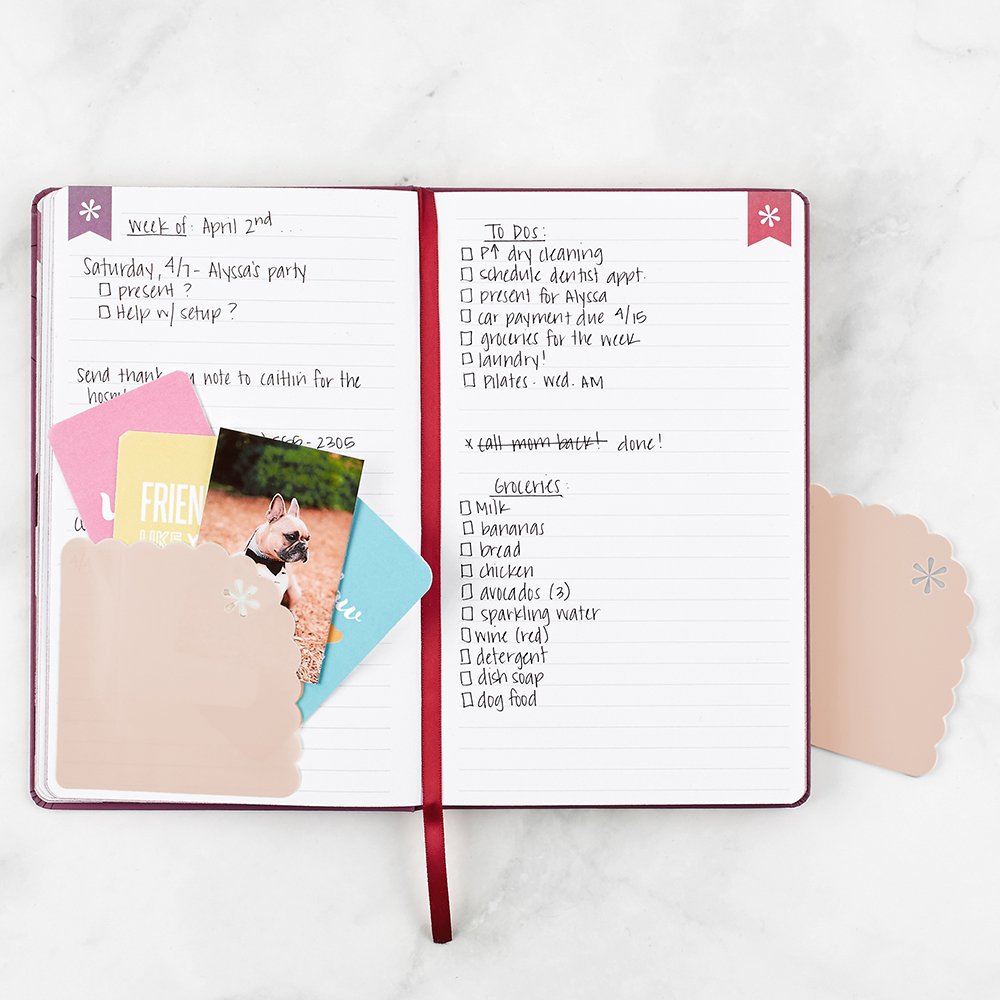 Week of: April 2nd ...
Saturday, 4/7 - Alyssa's party
□ present ?
□ Help w/ setup ?
Send thank note to caitlin for the
555-2305
FRIEN
LIKE
To Dos:
□ P↑ dry cleaning
□ schedule dentist appt.
□ present for Alyssa
□ car payment due 4/15
□ groceries for the week
□ laundry!
□ Pilates - Wed. AM
x call mom back! done!
Groceries:
□ Milk
□ bananas
□ bread
□ chicken
□ avocados (3)
□ sparkling water
□ wine (red)
□ detergent
□ dish soap
□ dog food